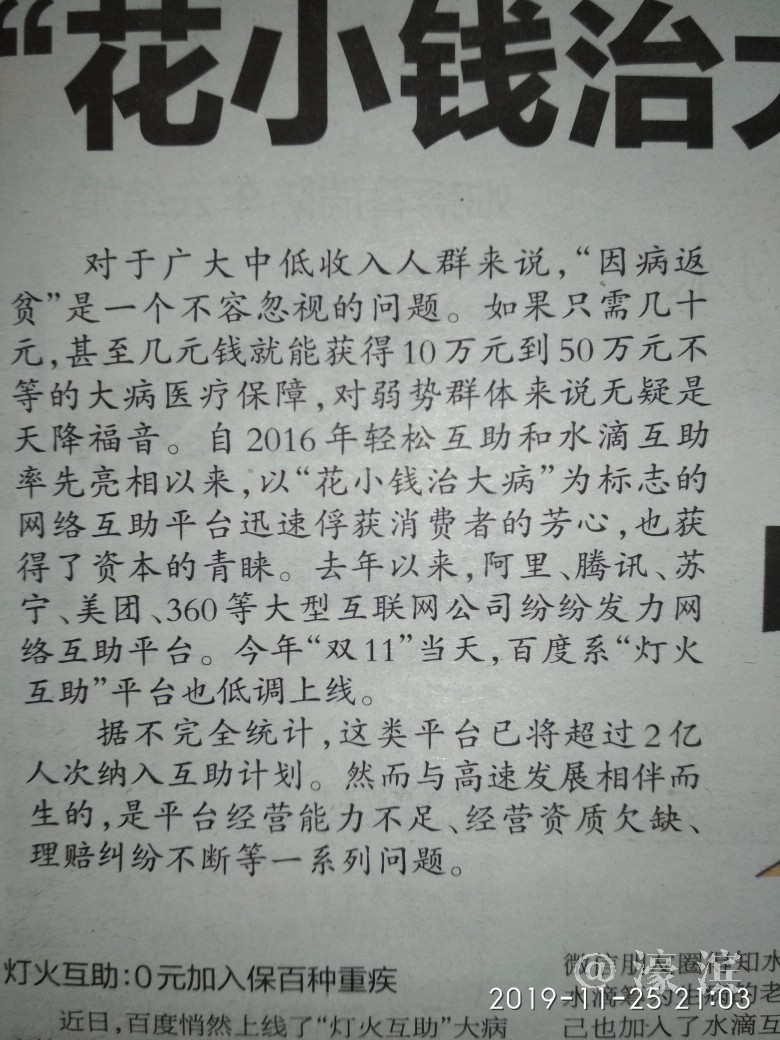 “花小钱治大
对于广大中低收入人群来说，“因病返
贫”是一个不容忽视的问题。如果只需几十
元，甚至几元钱就能获得10万元到50万元不
等的大病医疗保障，对弱势群体来说无疑是
天降福音。自2016年轻松互助和水滴互助
率先亮相以来，以“花小钱治大病”为标志的
网络互助平台迅速俘获消费者的芳心，也获
得了资本的青睐。去年以来，阿里、腾讯、苏
宁、美团、360等大型互联网公司纷纷发力网
络互助平台。今年“双11”当天，百度系“灯火
互助”平台也低调上线。
据不完全统计，这类平台已将超过2亿
人次纳入互助计划。然而与高速发展相伴而
生的，是平台经营能力不足、经营资质欠缺、
理赔纠纷不断等一系列问题。
灯火互助：0元加入保百种重疾
近日，百度悄然上线了“灯火互助”大病
微信朋友圈得知水
水滴筹的
的老
己也加入了水滴互
@濠滨
2019-11-25 21:03